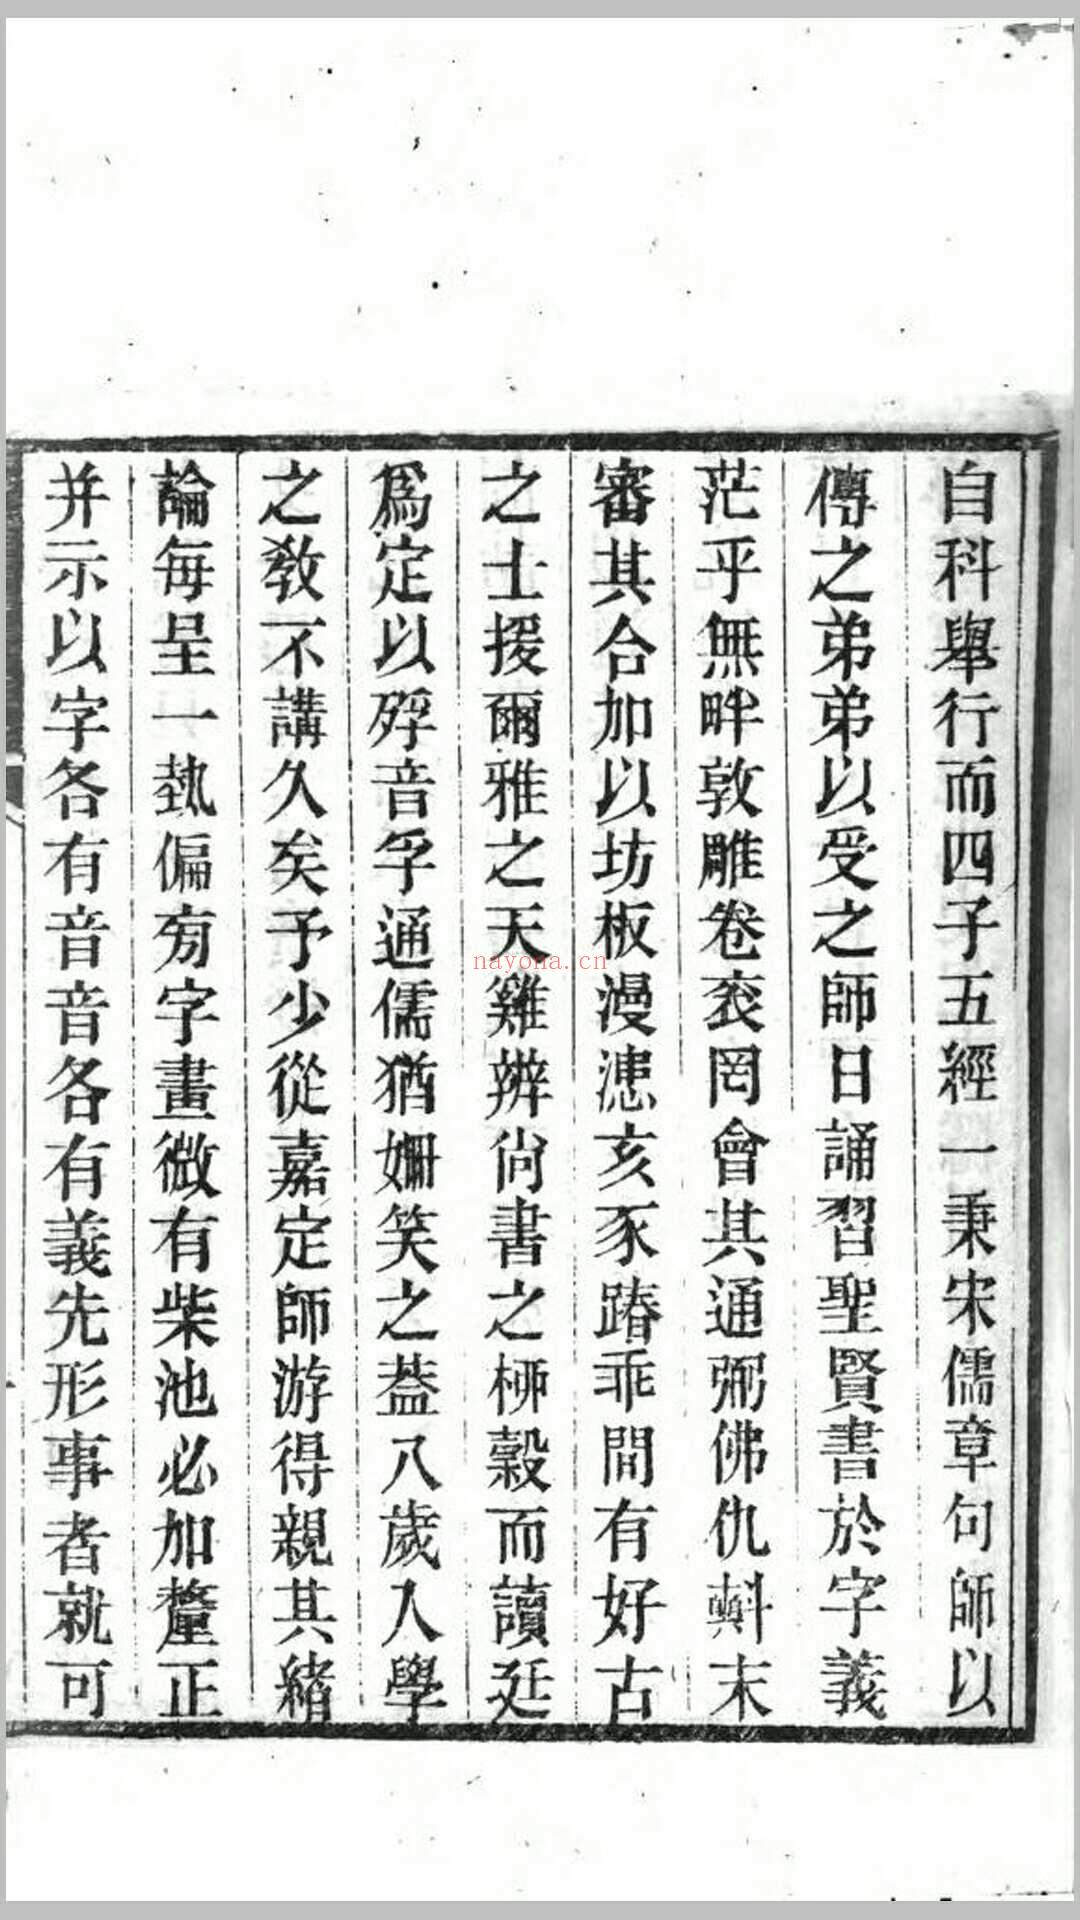 自科舉行而四子五經一秉宋儒章句師以
傳之弟弟以受之師日誦習聖賢書於字義
茫乎無畔敦雕卷袠罔會其通弼佛仇㪺末
審其合加以坊板漫漶亥豕踳乖間有好古
之士援爾雅之天雞辨尙書之桺穀而讀廷
爲定以殍音孚通儒猶姍笑之葢八歲入學
之敎不講久矣予少從嘉定師游得親其緖
論每呈一埶偏菊字畫微有柴池必加釐正
并示以字各有音音各有義先形事者就可
nayona.cn